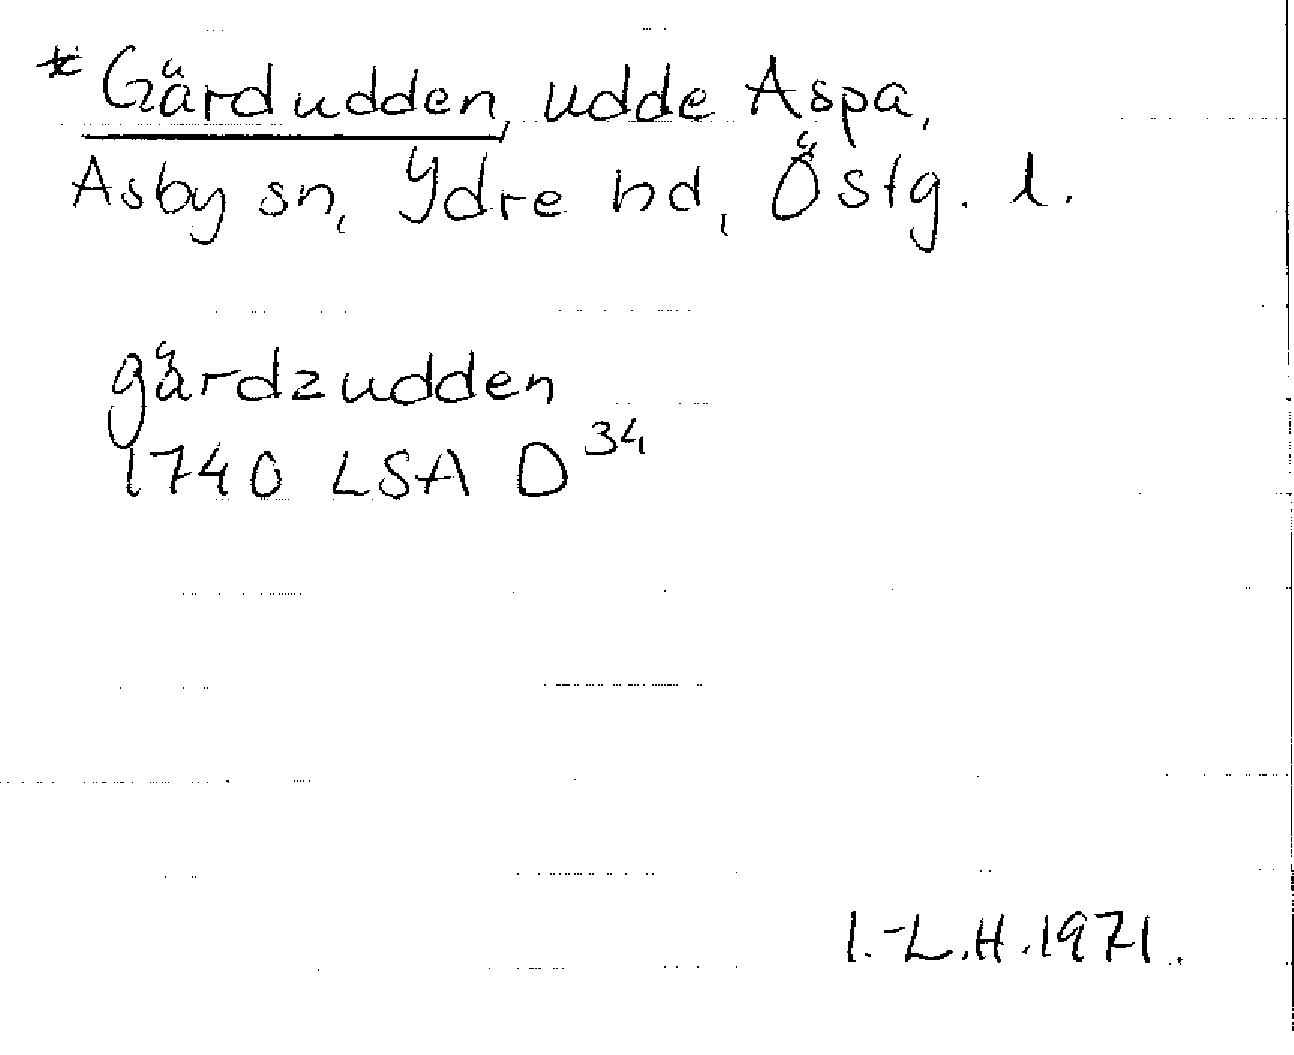 * Gärdudden, udde Aspa,
Asby sn, Ydre hd, Östg. l.
gärdzudden
1740 LSA D³⁴
I.-L.H. 1971.